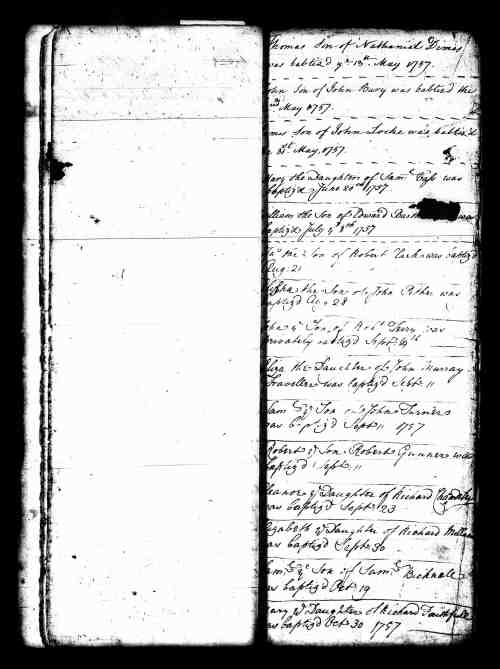 Thomas Son of Nathaniel Dimes
was babtied ye 13th May 1757.
John Son of John Bury was babtied the
May 1757.
James Son of John Locke was babtied
31st May 1757.
Mary the Daughter of Saml was
baptized June 20th 1757
William the Son of Edward was
baptizd July ye 3rd 1757
the Son of Robert was baptizd
Aug: 21
the Son of John was
baptizd Aug 28
John ye Son of Robt Terry was
privately baptizd Septr
Eliza the Daughter of John Murray
Traveller was baptizd Sebt 11
Saml ye Son of John Turner
was baptizd Septr 11 1757
Robert ye Son Robert Gunner was
baptizd Septr 11
Eleanor ye Daughter of Richard
was baptizd Septr 23
Elizabeth ye Daughter of Richard
was baptizd Septr 30
Saml ye Son of Saml Bicknell
was baptizd Oct 19
Mary ye Daughter of Richard Faithfull
was baptizd Oct 30 1757